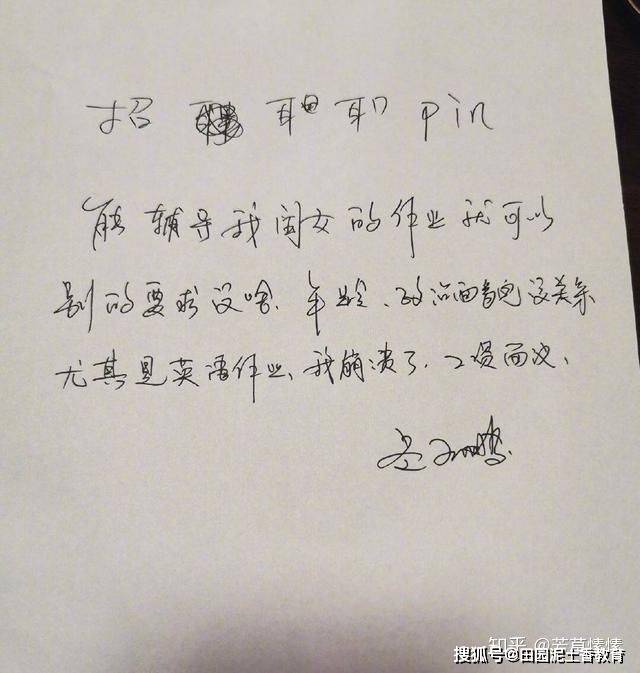 招 pin
能辅导我闺女的作业就可以
别的要求没啥、年龄、政治面貌没关系
尤其是英语作业、我崩溃了、工资面议、
知乎
搜狐号@田园泥土香教育